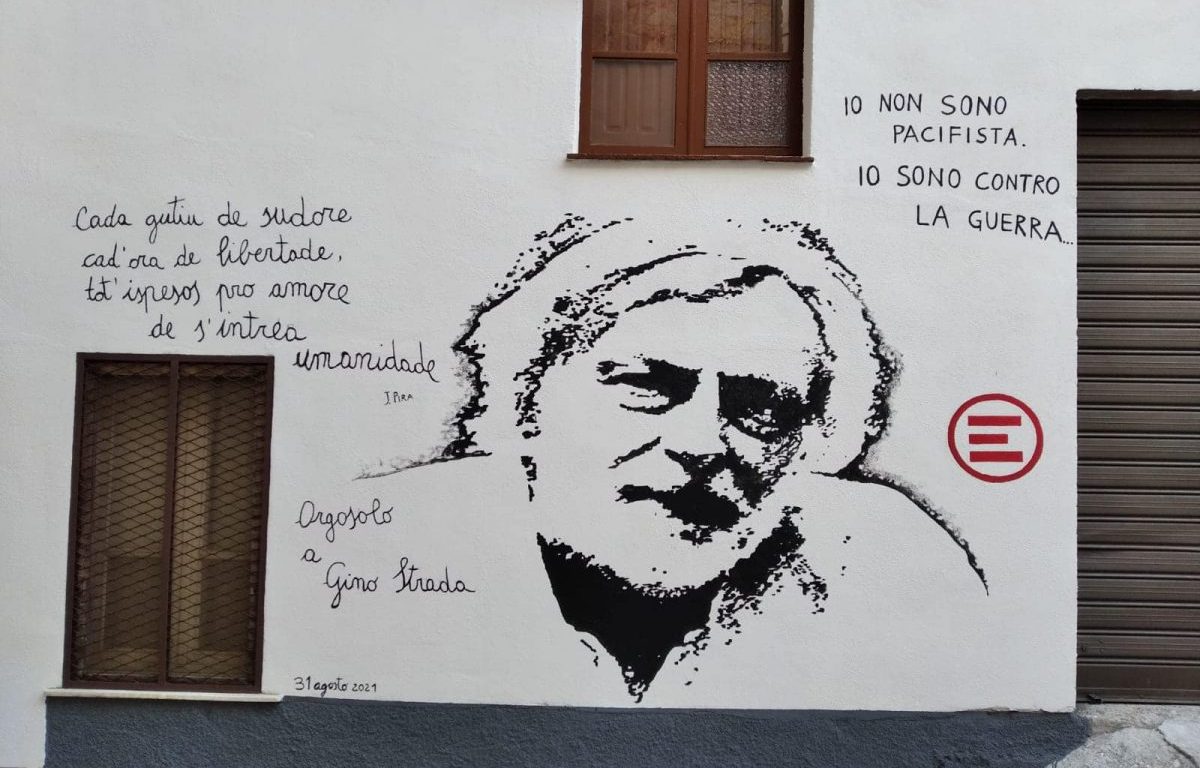 Cada gutiu de sudore
cad'ora de libertade,
tot'ispesos pro amore
de s'intrea
umanidade
I PIRA
Orgosolo
a
Gino Strada
31 agosto 2021
IO NON SONO
PACIFISTA.
IO SONO CONTRO
LA GUERRA...
E